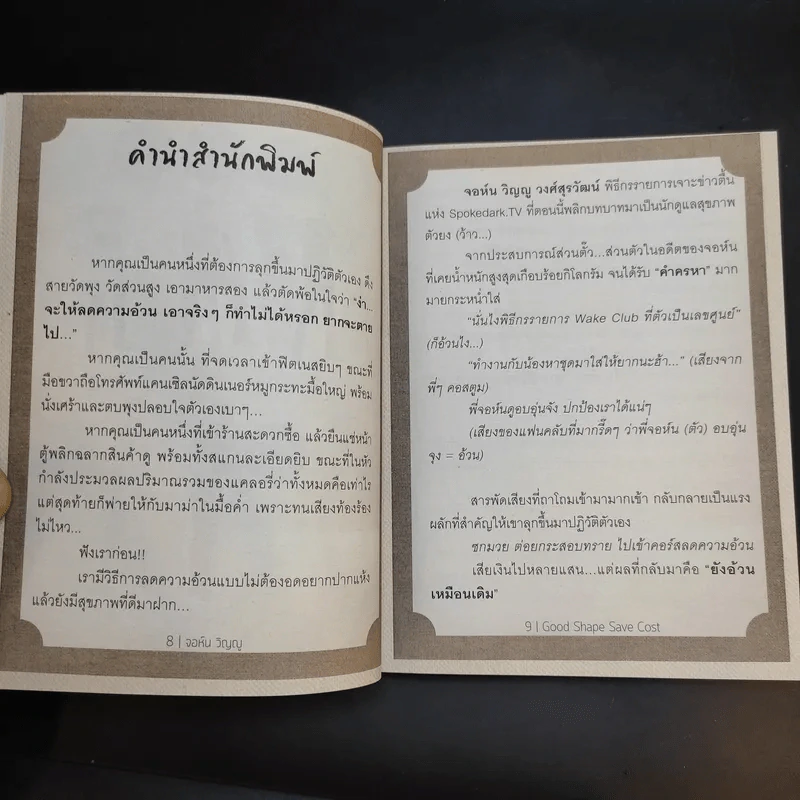 คำนำสำนักพิมพ์
หากคุณเป็นคนหนึ่งที่ต้องการลุกขึ้นมาปฏิวัติตัวเอง ดึง
สายวัดพุง วัดส่วนสูง เอามาหารสอง แล้วตัดพ้อในใจว่า “ง่า...
จะให้ลดความอ้วน เอาจริงๆ ก็ทำไม่ได้หรอก ยากจะตาย
ไป...”
หากคุณเป็นคนนั้น ที่จดเวลาเข้าฟิตเนสยิบๆ ขณะที่
มือขวาถือโทรศัพท์แคนเซิลนัดดินเนอร์หมูกระทะมื้อใหญ่ พร้อม
นั่งเศร้าและตบพุงปลอบใจตัวเองเบาๆ...
หากคุณเป็นคนหนึ่งที่เข้าร้านสะดวกซื้อ แล้วยืนแช่หน้า
ตู้พลิกฉลากสินค้าดู พร้อมทั้งสแกนละเอียดยิบ ขณะที่ในหัว
กำลังประมวลผลปริมาณรวมของแคลอรี่ว่าทั้งหมดคือเท่าไร
แต่สุดท้ายก็พ่ายให้กับมาม่าในมื้อค่ำ เพราะทนเสียงท้องร้อง
ไม่ไหว...
ฟังเราก่อน!!
เรามีวิธีการลดความอ้วนแบบไม่ต้องอดอยากปากแห้ง
แล้วยังมีสุขภาพที่ดีมาฝาก...
8 | จอห์น วิญญู
จอห์น วิญญู วงศ์สุรวัฒน์ พิธีกรรายการเจาะข่าวตื้น
แห่ง Spokedark.TV ที่ตอนนี้พลิกบทบาทมาเป็นนักดูแลสุขภาพ
ตัวยง (ว้าว...)
จากประสบการณ์ส่วนตั๊ว...ส่วนตัวในอดีตของจอห์น
ที่เคยน้ำหนักสูงสุดเกือบร้อยกิโลกรัม จนได้รับ “คำครหา” มาก
มายกระหน่ำใส่
“นั่นไงพิธีกรรายการ Wake Club ที่ตัวเป็นเลขศูนย์”
(ก็อ้วนไง...)
“ทำงานกับน้องหาชุดมาใส่ให้ยากนะฮ้า...” (เสียงจาก
พี่ๆ คอสตูม)
พี่จอห์นดูอบอุ่นจัง ปกป้องเราได้แน่ๆ
(เสียงของแฟนคลับที่มากรี๊ดๆ ว่าพี่จอห์น (ตัว) อบอุ่น
จุง = อ้วน)
สารพัดเสียงที่ถาโถมเข้ามามากเข้า กลับกลายเป็นแรง
ผลักที่สำคัญให้เขาลุกขึ้นมาปฏิวัติตัวเอง
ชกมวย ต่อยกระสอบทราย ไปเข้าคอร์สลดความอ้วน
เสียเงินไปหลายแสน...แต่ผลที่กลับมาคือ “ยังอ้วน
เหมือนเดิม”
9 | Good Shape Save Cost